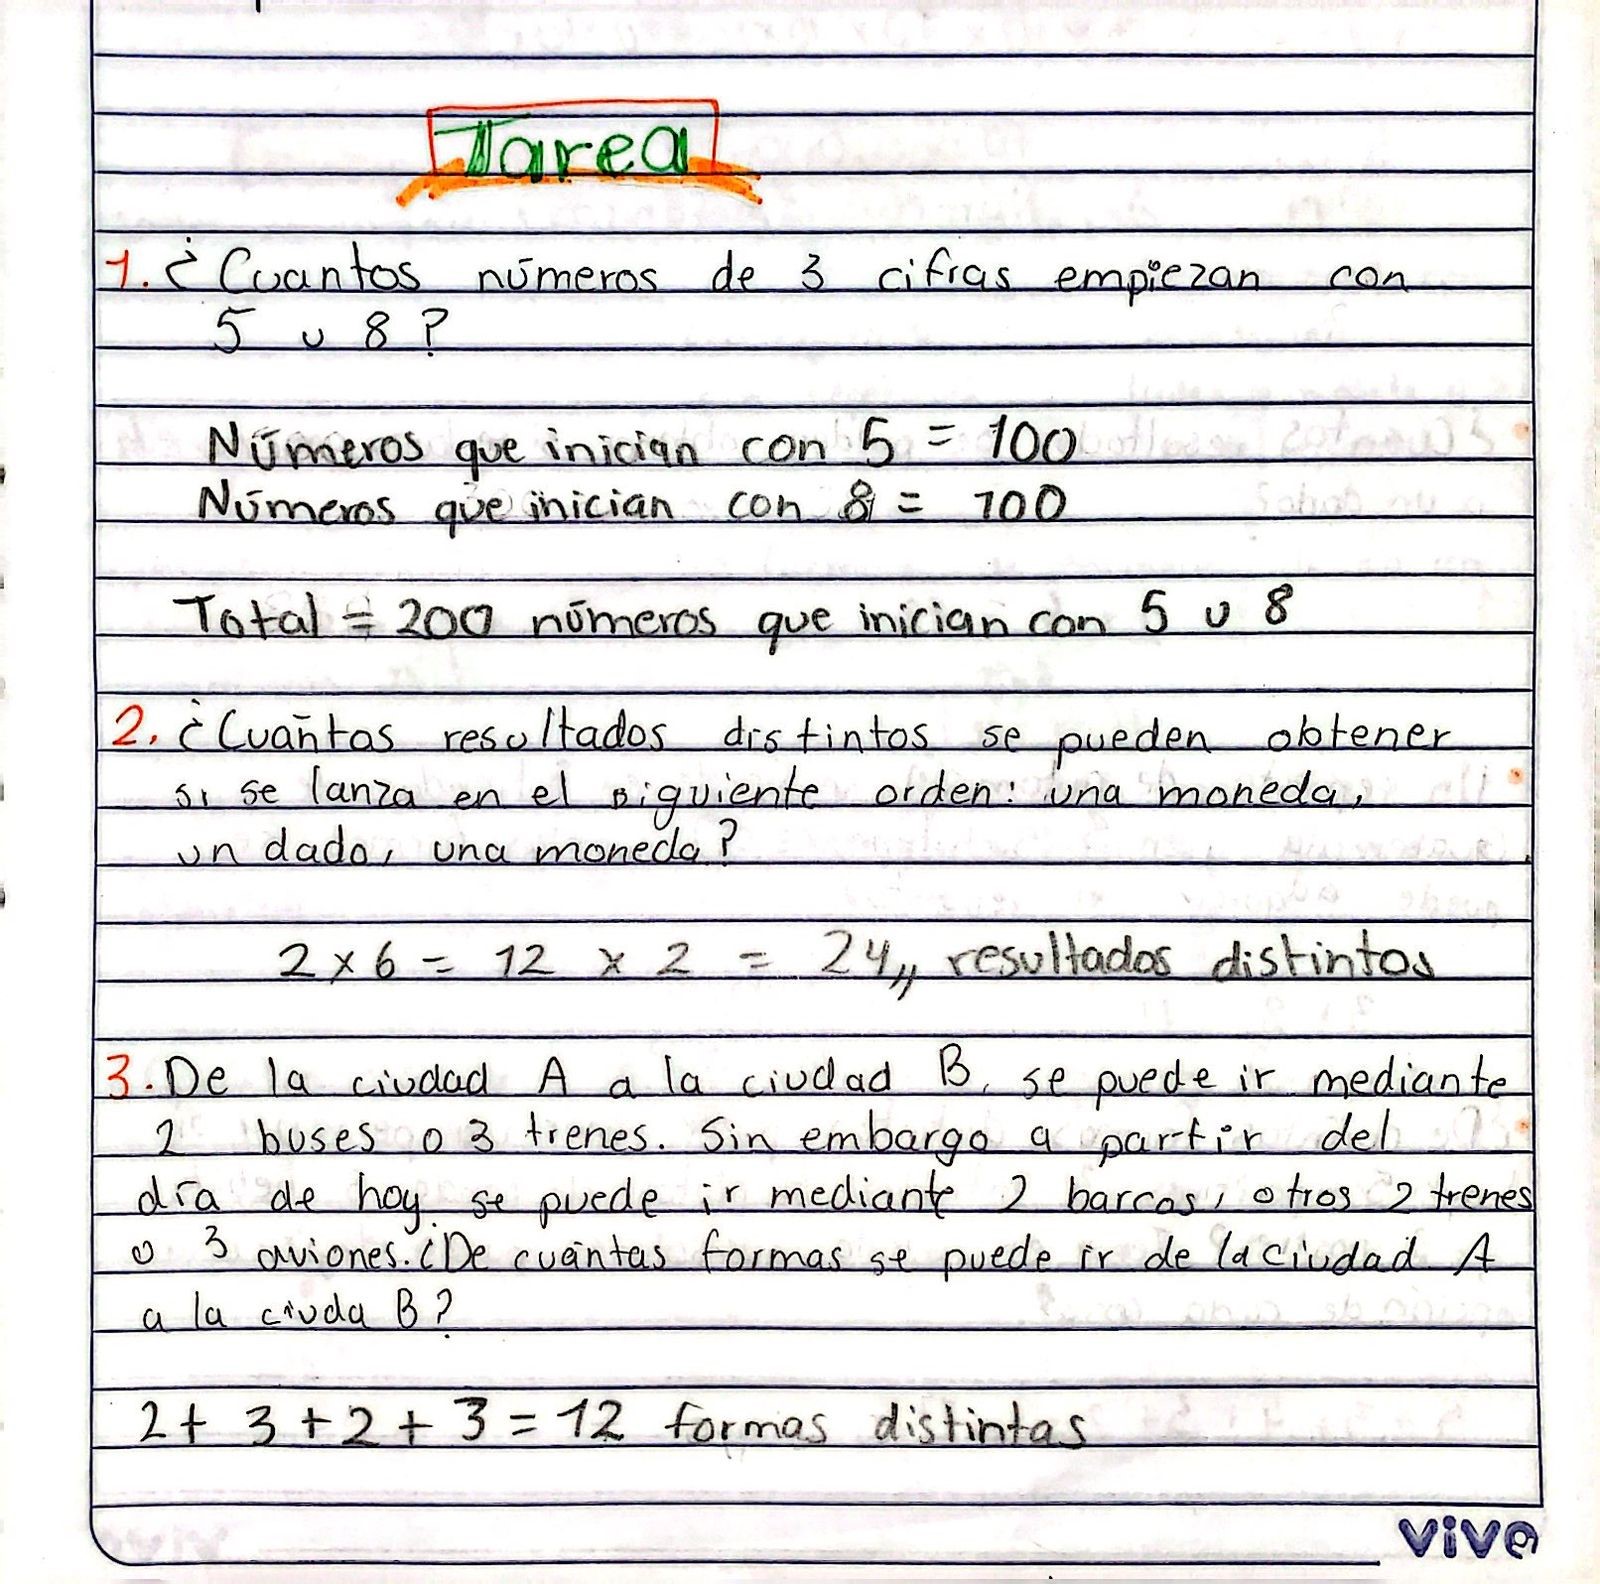 Tarea
1. ¿Cuantos números de 3 cifras empiezan con
5 u 8?
Números que inician con 5 = 100
Números que inician con 8 = 100
Total = 200 números que inician con 5 u 8
2. ¿Cuántos resultados distintos se pueden obtener
si se lanza en el siguiente orden: una moneda,
un dado, una moneda?
2 x 6 = 12 x 2 = 24,, resultados distintos
3. De la ciudad A a la ciudad B, se puede ir mediante
2 buses o 3 trenes. Sin embargo a partir del
día de hoy se puede ir mediante 2 barcos, otros 2 trenes
o 3 aviones. ¿De cuántas formas se puede ir de la ciudad A
a la ciuda B?
2 + 3 + 2 + 3 = 12 formas distintas
vive